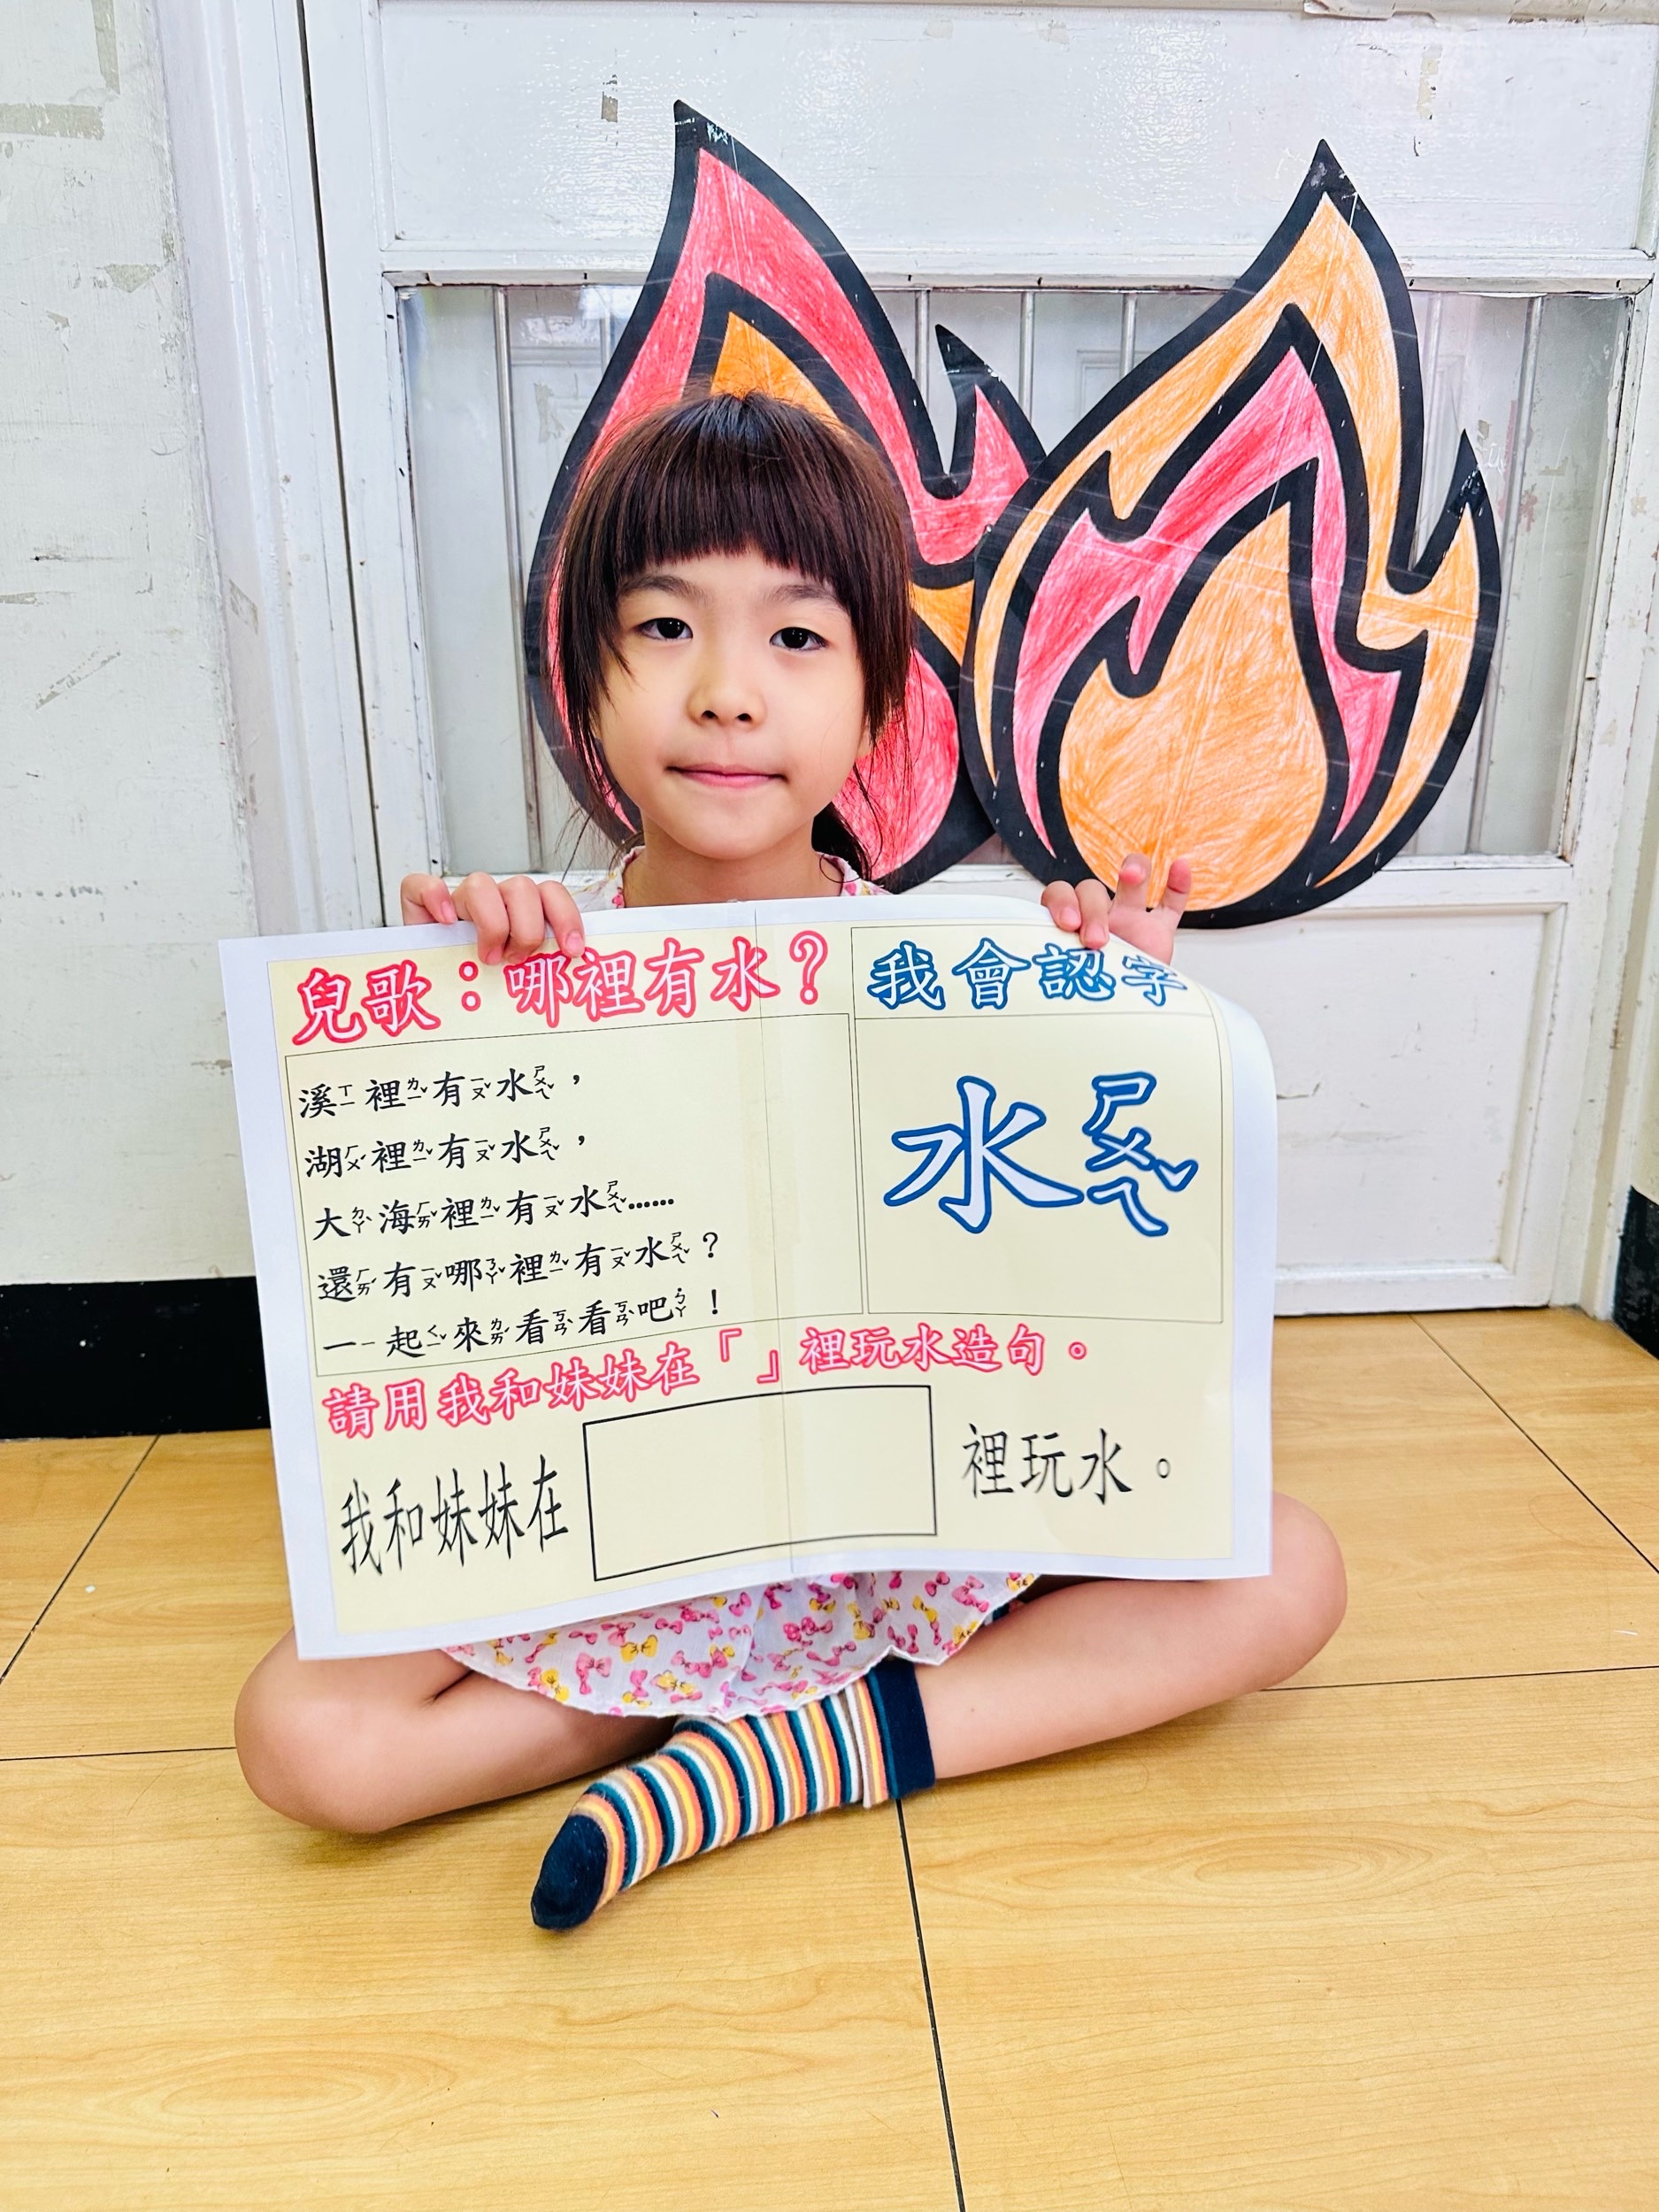 兒歌：哪裡有水？
溪ㄒㄧ裡ㄌㄧˇ有ㄧㄡˇ水ㄕㄨㄟˇ，
湖ㄏㄨˊ裡ㄌㄧˇ有ㄧㄡˇ水ㄕㄨㄟˇ，
大ㄉㄚˋ海ㄏㄞˇ裡ㄌㄧˇ有ㄧㄡˇ水ㄕㄨㄟˇ……
還ㄏㄞˊ有ㄧㄡˇ哪ㄋㄚˇ裡ㄌㄧˇ有ㄧㄡˇ水ㄕㄨㄟˇ？
一ㄧ起ㄑㄧˇ來ㄌㄞˊ看ㄎㄢˋ看ㄎㄢˋ吧ㄅㄚ˙！
我會認字
水ㄕㄨㄟˇ
請用我和妹妹在「 」裡玩水造句。
我和妹妹在 裡玩水。